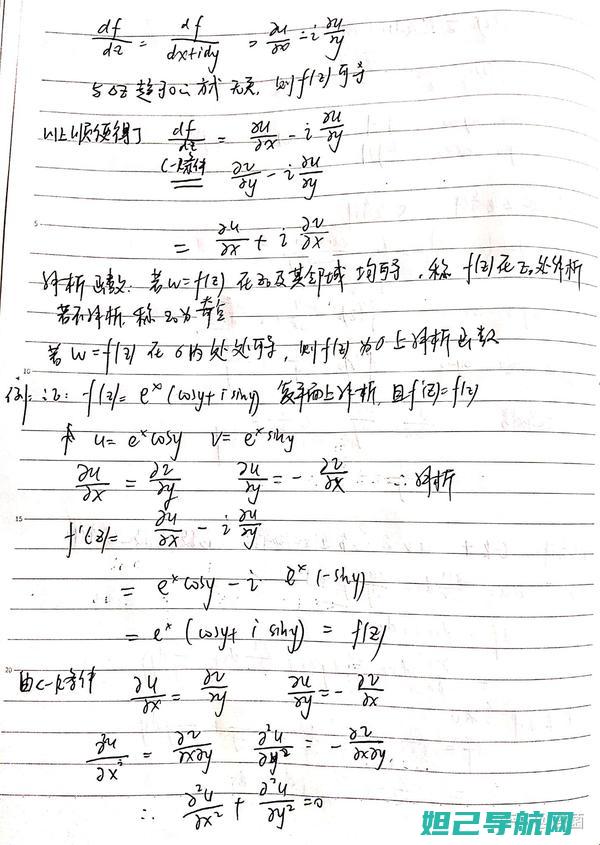 df/dz = df/(dx+idy) = ∂u/∂x - i ∂u/∂y
与Δz趋于0的方式无关, 则f(z)可导
df/dz = ∂u/∂x - i ∂u/∂y
C-R条件 ∂v/∂y - i ∂u/∂y
5
= ∂u/∂x + i ∂v/∂x
解析函数: 若w=f(z) 在z₀及其邻域均可导, 称 f(z)在z₀处解析
若不解析, 称z₀为奇点
若 w=f(z) 在σ内处处可导, 则f(z)为σ上解析函数
10
例: 证: f(z)= eˣ(cosy+i siny) 复平面上解析, 且f'(z)=f(z)
u= eˣcosy v= eˣsiny
∂u/∂x = ∂v/∂y ∂u/∂y = - ∂v/∂x ∴解析
15
f'(z)= ∂u/∂x - i ∂u/∂y
= eˣcosy - i eˣ(-siny)
= eˣ(cosy+ i siny) = f(z)
20
由C-R条件 ∂u/∂x = ∂v/∂y ∂u/∂y = - ∂v/∂x
∂²u/∂x² = ∂v/∂x∂y ∂²u/∂y² = - ∂v/∂x∂y
∴ ∂²u/∂x² + ∂²u/∂y² =0
妲己导航网